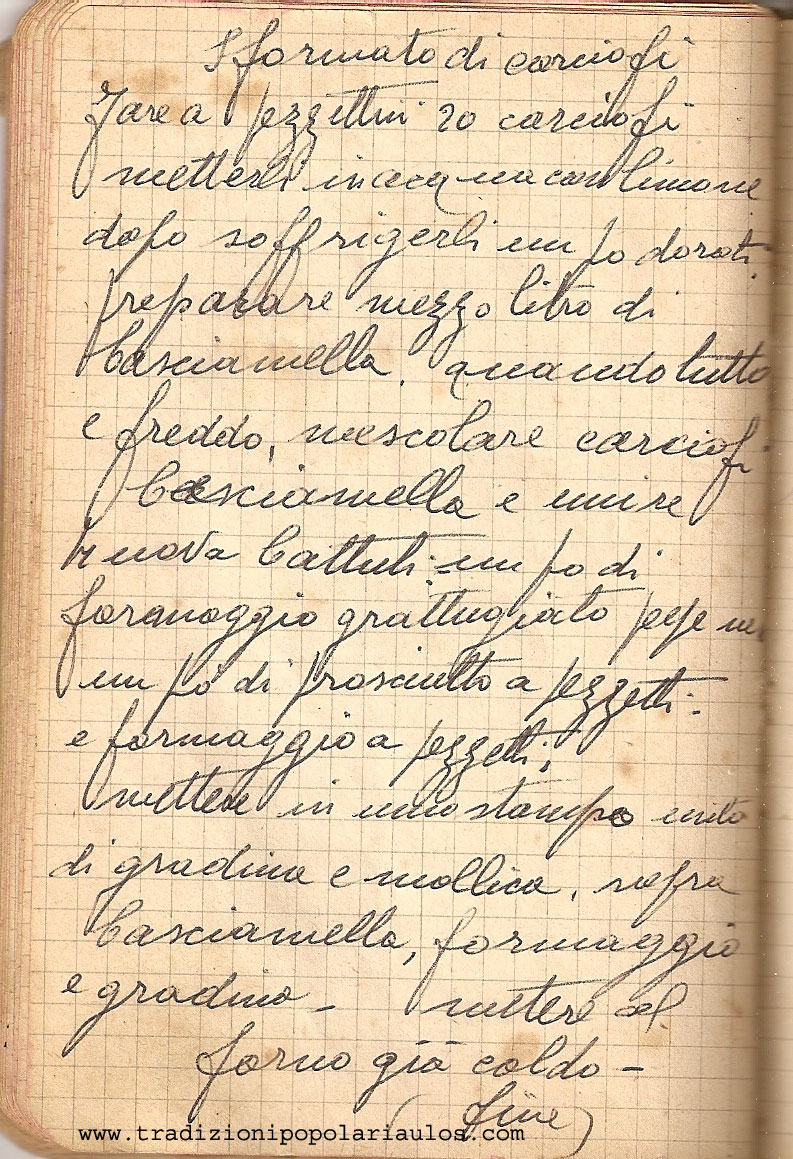 Sformato di carciofi
Fare a pezzettini 20 carciofi
metterli in acqua con limone
dopo soffrigerli un po dorati
preparare mezzo litro di
basciamella, quando tutto
e freddo, mescolare carciofi
basciamella e unire
4 uova battuti = un po di
formaggio grattugiato pepe
un po di prosciutto a pezzetti -
e formaggio a pezzetti,
mettere in uno stampo unto
di gradina e mollica, sopra
basciamella, formaggio
e gradina - mettere al
forno già caldo -
( fine )
www.tradizionipopolariaulos.com